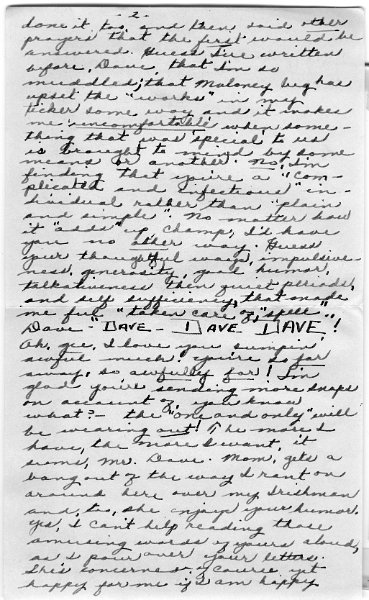 2.
done it too, and then said other
prayers that the first would be
answered. Guess I've written
before, Dave, that I'm so
muddled; that Maloney beg has
upset the "works" in my
ticker some way and it makes
me uncomfortable when some-
thing that was special to us
is brought to mind by some
means or another. No, I'm
finding that you're a "com-
plicated and infectious" in-
dividual rather than "plain
and simple". No matter how
it "adds" up, Champ, I'd have
you no other way. Guess
your thoughtful ways, impulsive-
ness, generosity, good humor,
talkativeness then quiet periods,
and self sufficiency, that made
me feel "taken care of," "spell"
Dave - DAVE - DAVE DAVE!
Oh, gee, I love you sumpin'
awful much! You're so far
away, so awfully far! I'm
glad you're sending more snaps
on account of, you know
what? - the "one and only" will
be wearing out! The more I
have, the more I want, it
seems, Mr. Dave. Mom, gets a
bang out of the way I rant on
around here over my Irishman
and, to, she enjoys your humor.
Yes, I can't help reading those
amusing words of yours aloud,
as I pour over your letters.
She's concerned, of course yet
happy for me if I am happy